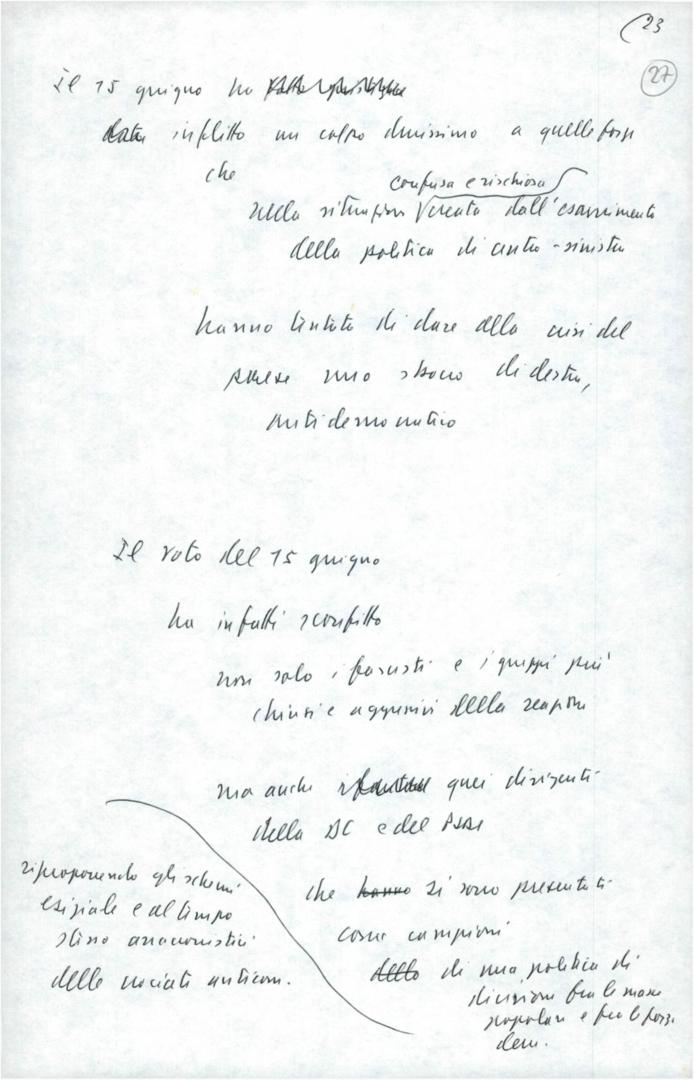 (23
27
Il 15 giugno ha
inflitto un colpo durissimo a quelle forze
che
confusa e rischiosa
nella situazione creata dall'esaurimento
della politica di centro-sinistra
hanno tentato di dare alla crisi del
paese uno sbocco di destra,
antidemocratico
Il voto del 15 giugno
ha infatti sconfitto
non solo i fascisti e i gruppi più
chiusi e aggressivi della reazione
ma anche quei dirigenti
della DC e del PSDI
che hanno si sono presentati
come campioni
dello di una politica di
divisione fra le masse
popolari e fra le forze
dem.
riproponendo gli schemi
esiziale e al tempo
stesso anacronistici
delle crociate anticom.